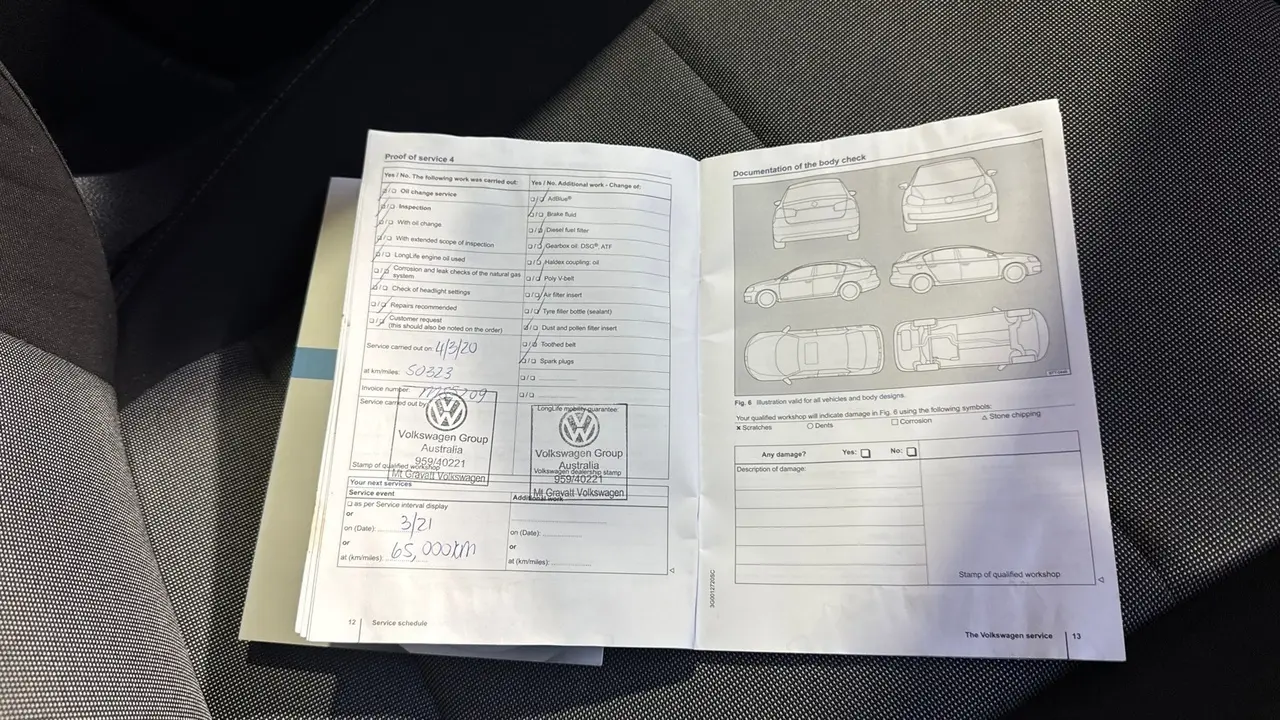 Proof of service 4
Yes / No. The following work was carried out:
Oil change service
Inspection
With oil change
With extended scope of inspection
LongLife engine oil used
Corrosion and leak checks of the natural gas
system
Check of headlight settings
Repairs recommended
Customer request
(this should also be noted on the order)
Service carried out on: 4/3/20
at km/miles: 50323
Invoice number:
Service carried out by
Volkswagen Group
Australia
959/40221
Mt Gravatt Volkswagen
Stamp of qualified workshop
Yes / No. Additional work - Change of:
AdBlue®
Brake fluid
Diesel fuel filter
Gearbox oil: DSG®; ATF
Haldex coupling: oil
Poly V-belt
Air filter insert
Tyre filler bottle (sealant)
Dust and pollen filter insert
Toothed belt
Spark plugs
LongLife mobility guarantee:
Volkswagen Group
Australia
Volkswagen dealership stamp
959/40221
Mt Gravatt Volkswagen
Your next services
Service event
as per Service interval display
or
on (Date): 3/21
or
at (km/miles): 65,000km
Additional work
on (Date):
or
at (km/miles):
12 Service schedule
Documentation of the body check
Fig. 6 Illustration valid for all vehicles and body designs.
Your qualified workshop will indicate damage in Fig. 6 using the following symbols:
Scratches Dents Corrosion Stone chipping
Any damage? Yes: No:
Description of damage:
Stamp of qualified workshop
3G0012720SC
The Volkswagen service 13